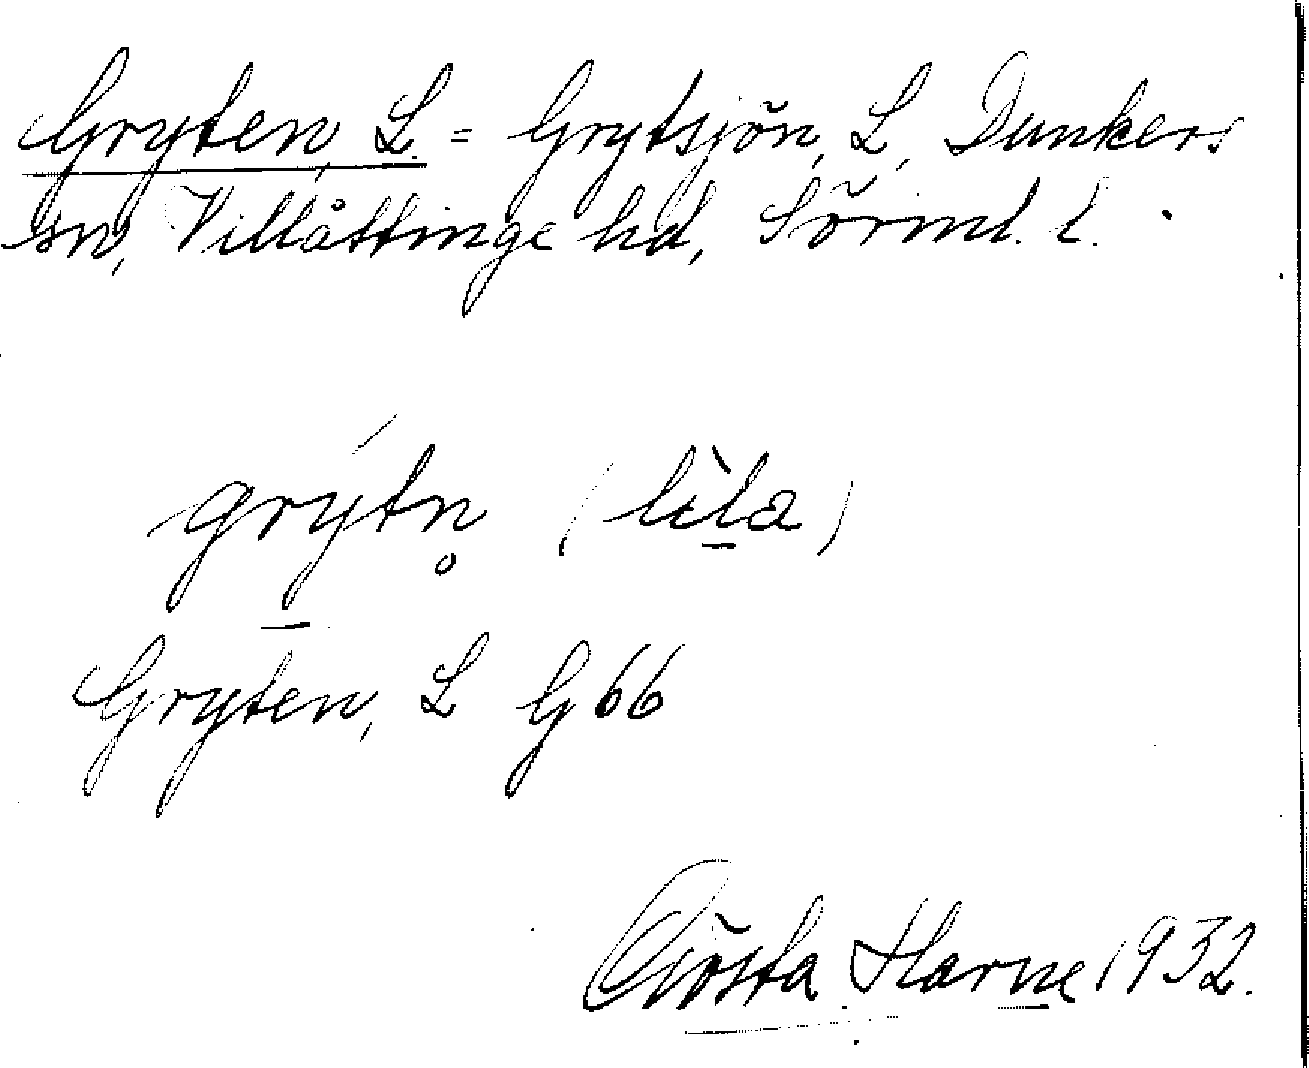 Gryten, L. = Grytsjön, L., Dunkers
sn, Villåttinge hd, Sörml. l.
grýtn̥ (lìla)
Gryten, L G66
Gösta Harne 1932.